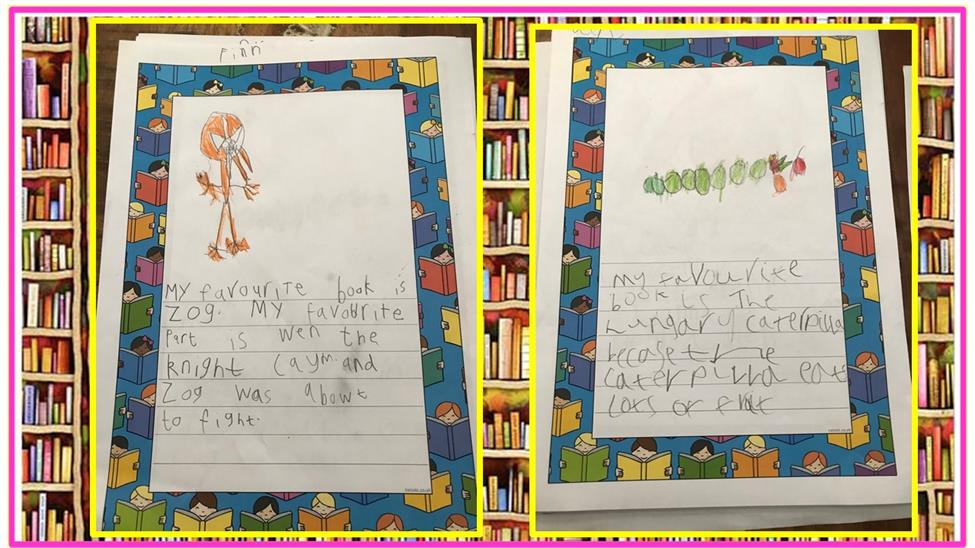 Finn
MY favourite book is
Zog. MY favourite
Part is wen the
knight caym and
Zog was abowt
to fight.
twinkl.co.uk
my favourite
book is The
hungary caterpilla
becaset the
caterpilla eat
lots of fruit
twinkl.co.uk